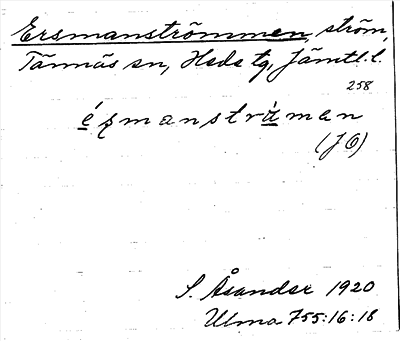 Ersmanströmmen, ström,
Tännäs sn, Hede tg, Jämtl. l.
258
é̱ṣmanstrὰ̱man
(JO)
S. Åsander 1920
Ulma 755:16:18